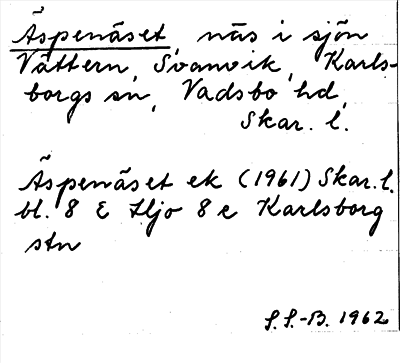 Äspenäset, näs i sjön
Vättern, Svanvik, Karls-
borgs sn, Vadsbo hd,
Skar. l.
Äspenäset ek (1961) Skar. l.
bl. 8 E Hjo 8 e Karlsborg
stn
S.S.-B. 1962